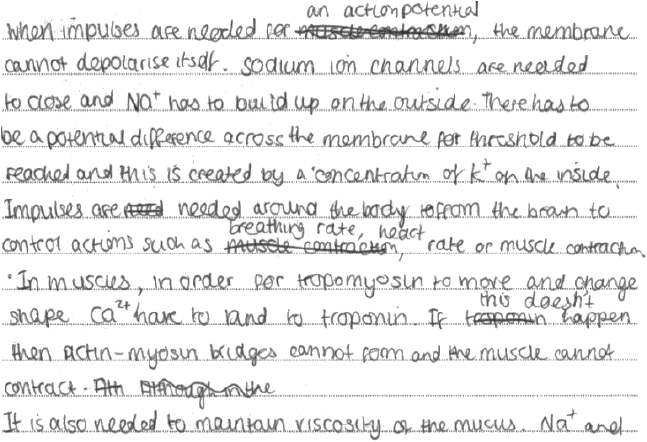 an action potential
when impulses are needed for muscle contraction, the membrane
cannot depolarise itself. Sodium ion channels are needed
to close and Na⁺ has to build up on the outside. There has to
be a potential difference across the membrane for threshold to be
reached and this is created by a concentration of K⁺ on the inside.
Impulses are need needed around the body to from the brain to
breathing rate, heart
control actions such as muscle contraction, rate or muscle contraction.
In muscles, in order for tropomyosin to move and change
this doesn't
shape Ca²⁺ have to bind to troponin. If troponin happen
then actin-myosin bridges cannot form and the muscle cannot
contract. Although in the
It is also needed to maintain viscosity of the mucus. Na⁺ and